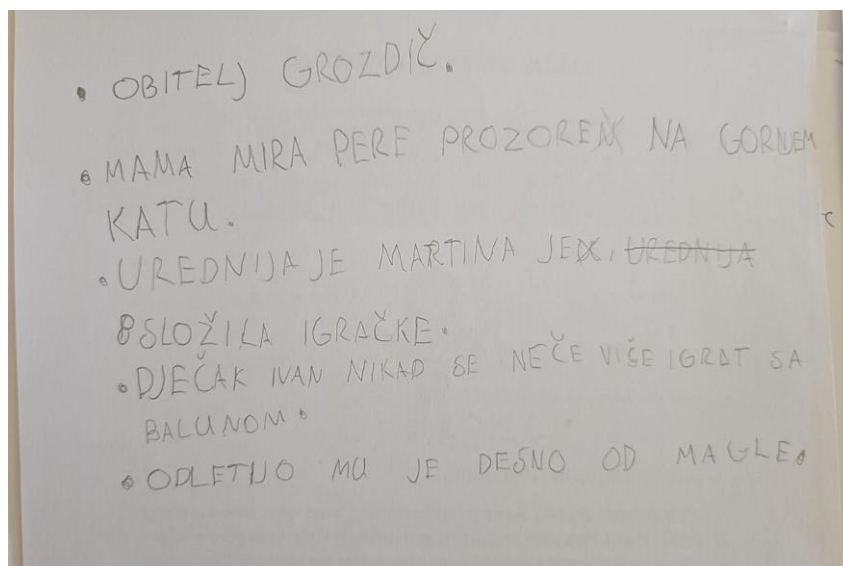 • OBITELJ GROZDIČ.
• MAMA MIRA PERE PROZORE NA GORNJEM
KATU.
• UREDNIJA JE MARTINA JE, UREDNIJA
SLOŽILA IGRAČKE.
• DJEČAK IVAN NIKAD SE NEČE VIŠE IGRAT SA
BALUNOM.
• ODLETIJO MU JE DESNO OD MAGLE.